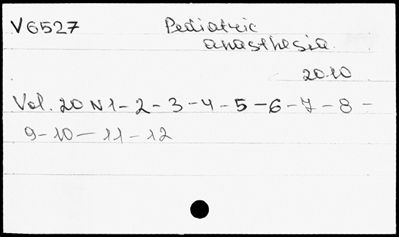 V6527 Pediatric
anasthesia
2010
Vol. 20 N 1 - 2 - 3 - 4 - 5 - 6 - 7 - 8 -
9 - 10 - 11 - 12